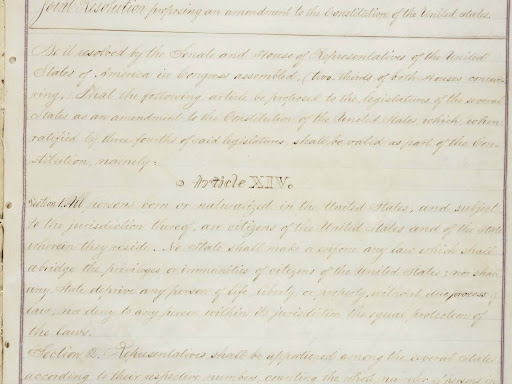 Joint Resolution proposing an amendment to the Constitution of the United States.
Be it resolved by the Senate and House of Representatives of the United
States of America in Congress assembled, (two thirds of both Houses concur-
ring,) That the following article be proposed to the legislatures of the several
States as an amendment to the Constitution of the United States, which, when
ratified by three fourths of said legislatures, shall be valid as part of the Con-
stitution, namely:
Article XIV.
Section 1. All persons born or naturalized in the United States, and subject
to the jurisdiction thereof, are citizens of the United States and of the State
wherein they reside. No State shall make or enforce any law which shall
abridge the privileges or immunities of citizens of the United States; nor shall
any State deprive any person of life, liberty, or property, without due process of
law, nor deny to any person within its jurisdiction the equal protection of
the laws.
Section 2. Representatives shall be apportioned among the several States
according to their respective numbers, counting the whole number of persons in